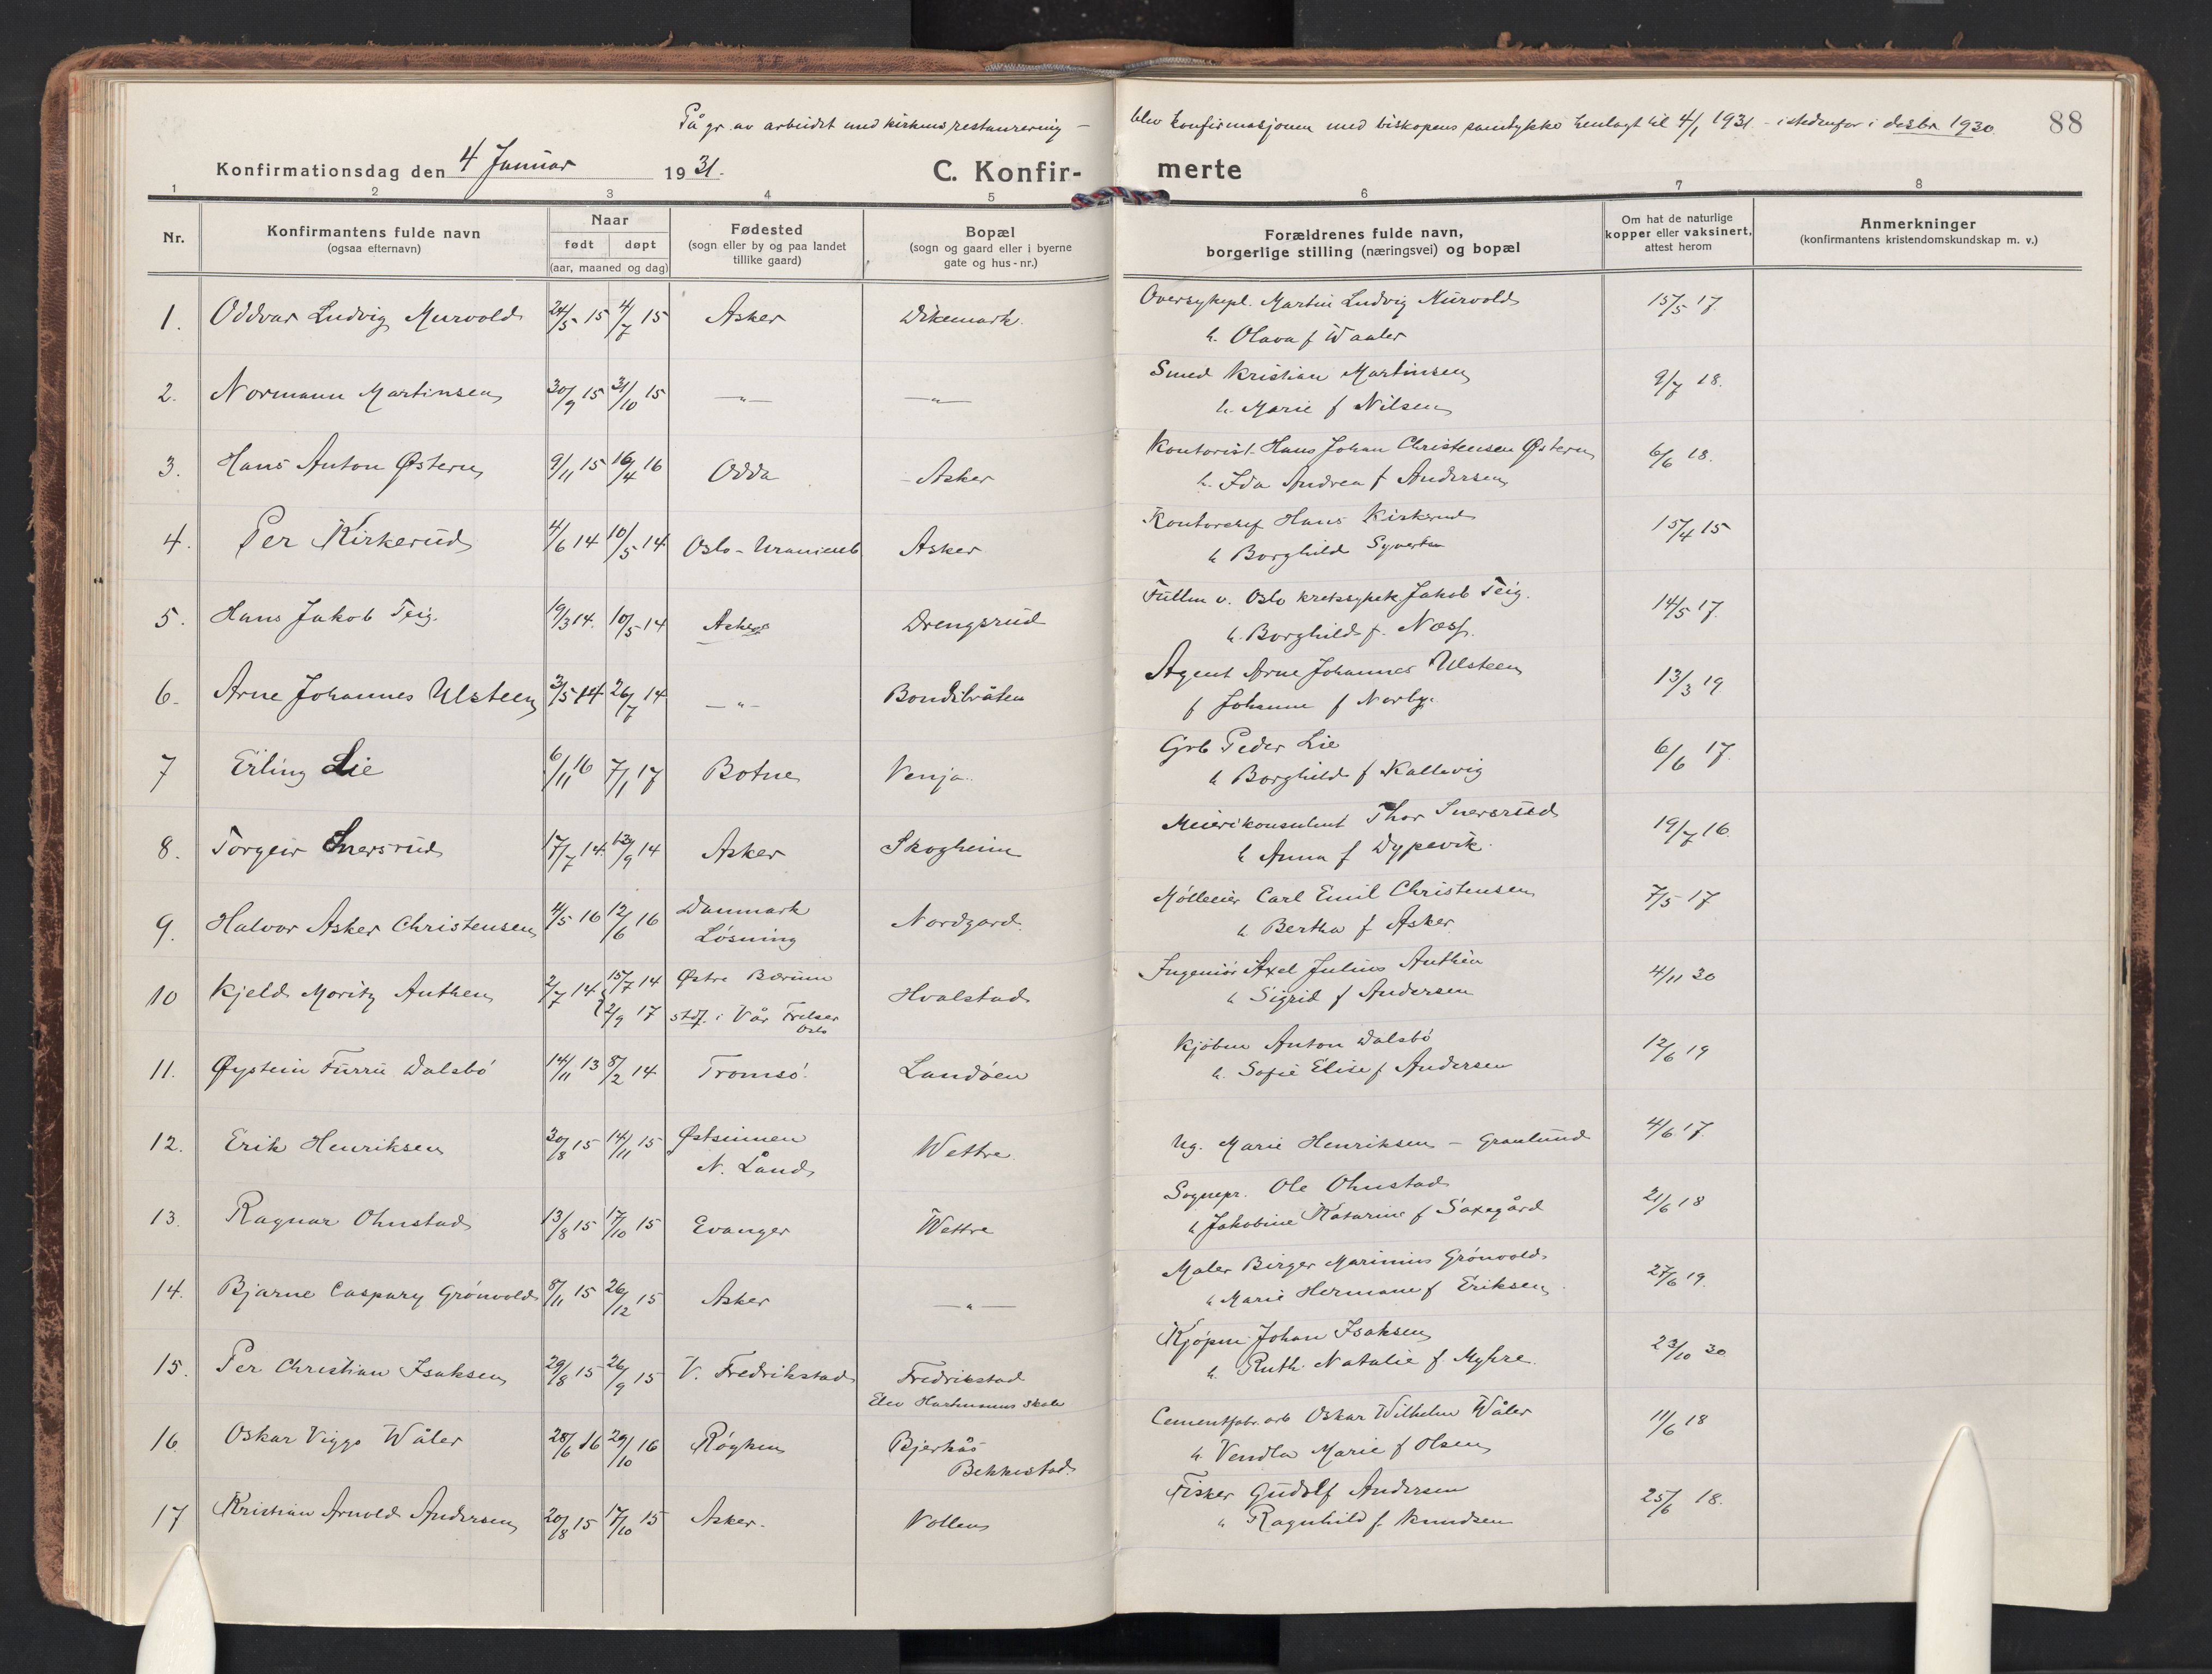 På gr. av arbeidet med kirkens restaurering - blev konfirmasjonen med biskopens samtykke henlagt til 4/1 1931. - istedenfor i desbr. 1930.
88
Konfirmationsdag den 4 Januar 1931.
C. Konfir- merte
1 2 3 4 5 6 7 8
Nr.
Konfirmantens fulde navn (ogsaa efternavn)
Naar født døpt (aar, maaned og dag)
Fødested (sogn eller by og paa landet tillike gaard)
Bopæl (sogn og gaard eller i byerne gate og hus-nr.)
Forældrenes fulde navn, borgerlige stilling (næringsvei) og bopæl
Om hat de naturlige kopper eller vaksinert, attest herom
Anmerkninger (konfirmantens kristendomskundskap m. v.)
1. Oddvar Ludvig Murvold 24/5 15 4/7 15 Asker Dikemark. Oversykepl. Martin Ludvig Murvold 15/5 17.
h. Olava f Waaler
2. Normann Martinsen 30/9 15 31/10 15 —"— —"— Smed Kristian Martinsen 9/7 18.
h. Marie f Nilsen
3. Hans Anton Østern 9/11 15 16/4 16 Odda - Asker Kontorist. Hans Johan Christensen Østern 6/6 18.
h. Ida Andrea f Andersen
4. Per Kirkerud 4/6 14 10/5 14 Oslo - Uranienb Asker Kontorchef Hans Kirkerud 15/4 15
h Borghild Syvertsen
5. Hans Jakob Teig. 19/3 14. 10/5 14 Asker Drengsrud Fullm v. Oslo kretssykek. Jakob Teig. 14/5 17.
h. Borghild f. Næss.
6. Arne Johannes Ulsteen 3/5 14 26/7 14 —"— Bondibråten Agent Arne Johannes Ulsteen 13/3 19
f Johanne f Norby.
7 Erling Lie 6/11 16 7/1 17 Botne Venja. Grb Peder Lie 6/6 17.
h Borghild f Kallevig
8. Torgeir Snersrud 17/7 14. 13/9 14 Asker Skogheim Meierikonsulent Thor Snersrud 19/7 16.
h Anna f Dypevik.
9. Halvor Asker Christensen 4/5 16 12/6 16 Danmark Løsning Nordgard. Mølleeier Carl Emil Christensen 7/5 17
h Bertha f Asker.
10 Kjeld Moritz Anthen 2/7 14 15/7 14 Østre Bærum Hvalstad Ingeniör Axel Julius Anthén 4/11 30
2/9 17 stdf. i Vår Frelser Oslo h Sigrid f Andersen
11. Øystein Furru Dalsbö 14/11 13 8/2 14 Tromsö. Landöen Kjöbm Anton Dalsbö 12/6 19
h. Sofie Elise f Andersen
12. Erik Henriksen 30/8 15 14/11 15 Østsinnen N. Land Wettre. Ug. Marie Henriksen - Granlund 4/6 17.
13. Ragnar Ohnstad 13/8 15 17/10 15 Evanger Wettre Sognepr. Ole Ohnstad 21/6 18
h Jakobine Katarine f Saxegård
14. Bjarne Caspary Grönvold 8/11 15 26/12 15 Asker —"— Maler Birger Marinius Grönvold 27/6 19.
h Marie Hermane f Eriksen.
15. Per Christian Isaksen 29/8 15 26/9 15 V. Fredrikstad Fredrikstad Kjøpm. Johan Isaksen 23/10 30
Elev Hartmanns skole h. Ruth Natalie f. Myhre.
16. Oskar Viggo Wåler 28/6 16 29/10 16 Røyken Bjerkås Bekkestad. Cementfabr. arb Oskar Wilhelm Wåler 11/6 18
h. Vendla Marie f Olsen
17 Kristian Arnold Andersen 20/8 15 17/10 15 Asker. Vollen Fisker Gudolf Andersen 25/6 18.
" Ragnhild f. Knudsen